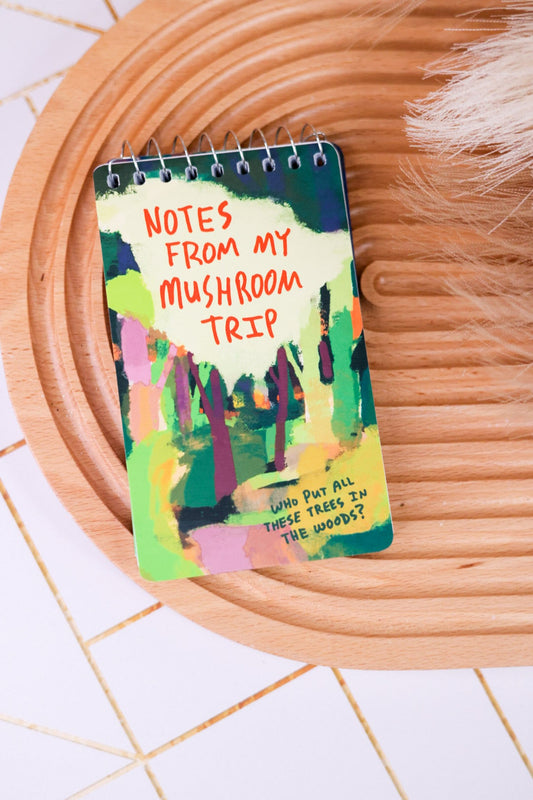 NOTES
FROM MY
MUSHROOM
TRIP
WHO PUT ALL
THESE TREES IN
THE WOODS?